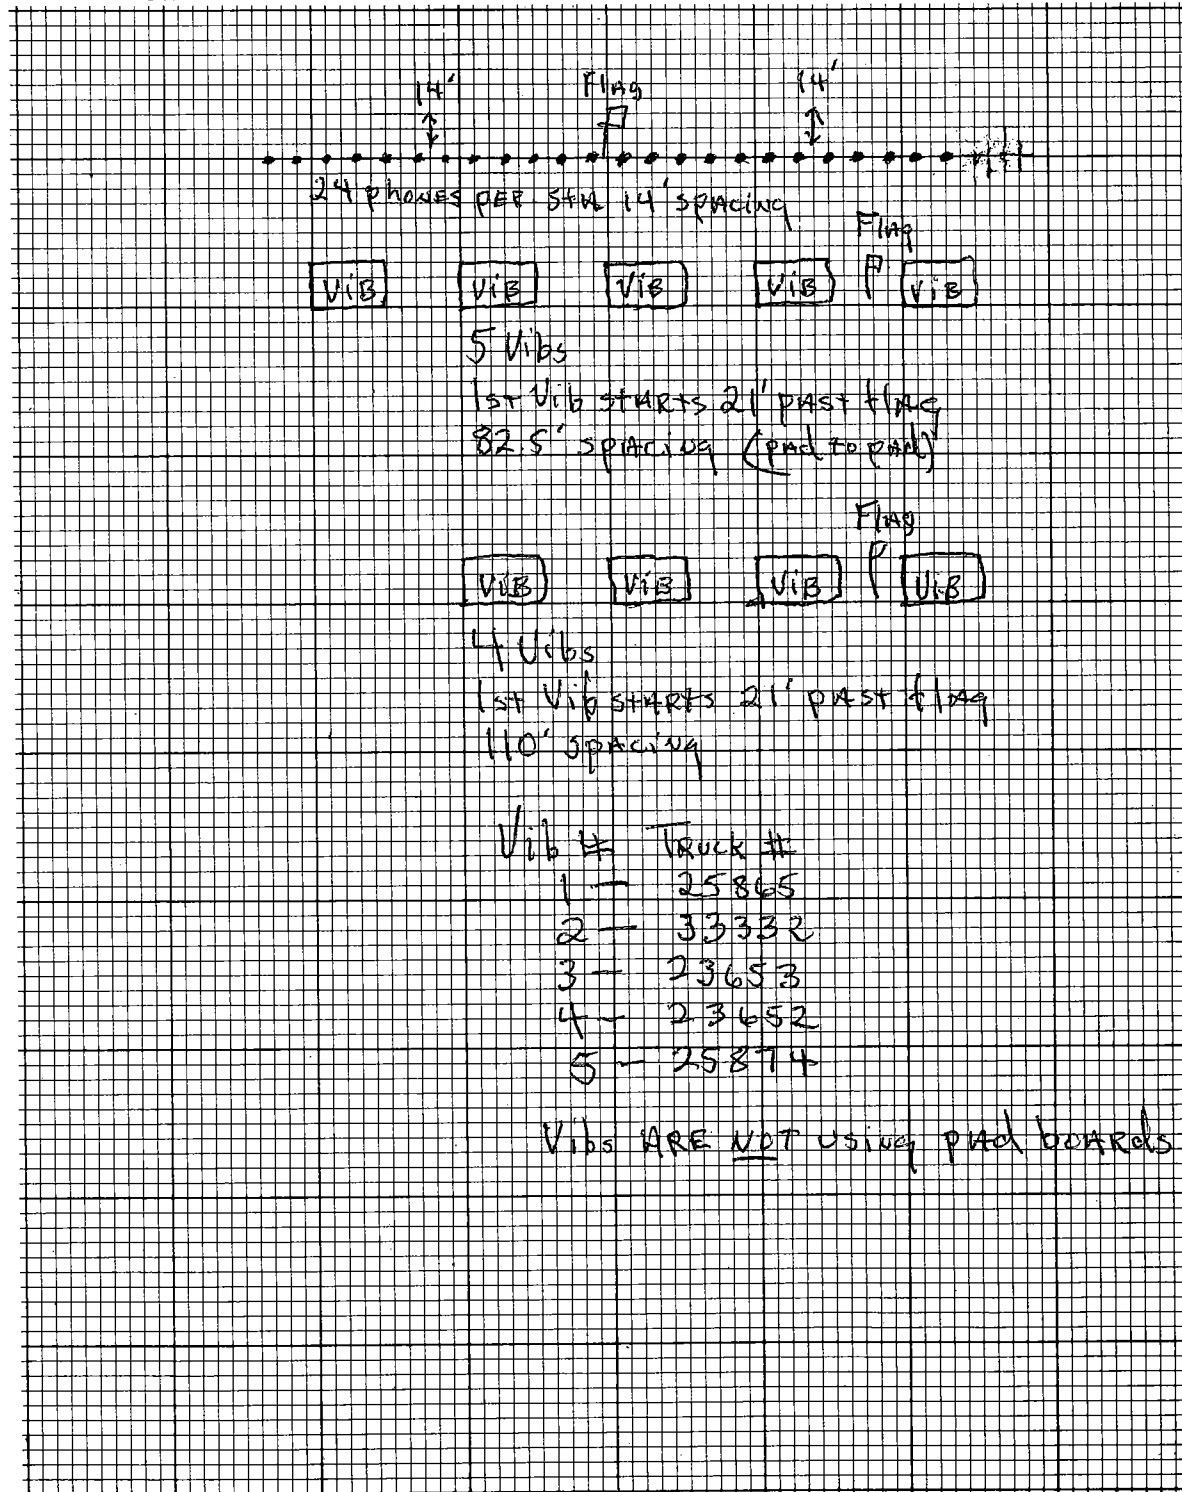 14' Flag 14'
24 phones per stn 14' spacing
Flag
ViB ViB ViB ViB ViB
5 Vibs
1st Vib starts 21' past flag
82.5' spacing (pad to pad)
Flag
ViB ViB ViB ViB
4 Vibs
1st Vib starts 21' past flag
110' spacing
Vib # Truck #
1 — 25865
2 — 33332
3 — 23653
4 — 23652
5 — 25874
Vibs ARE NOT using pad boards